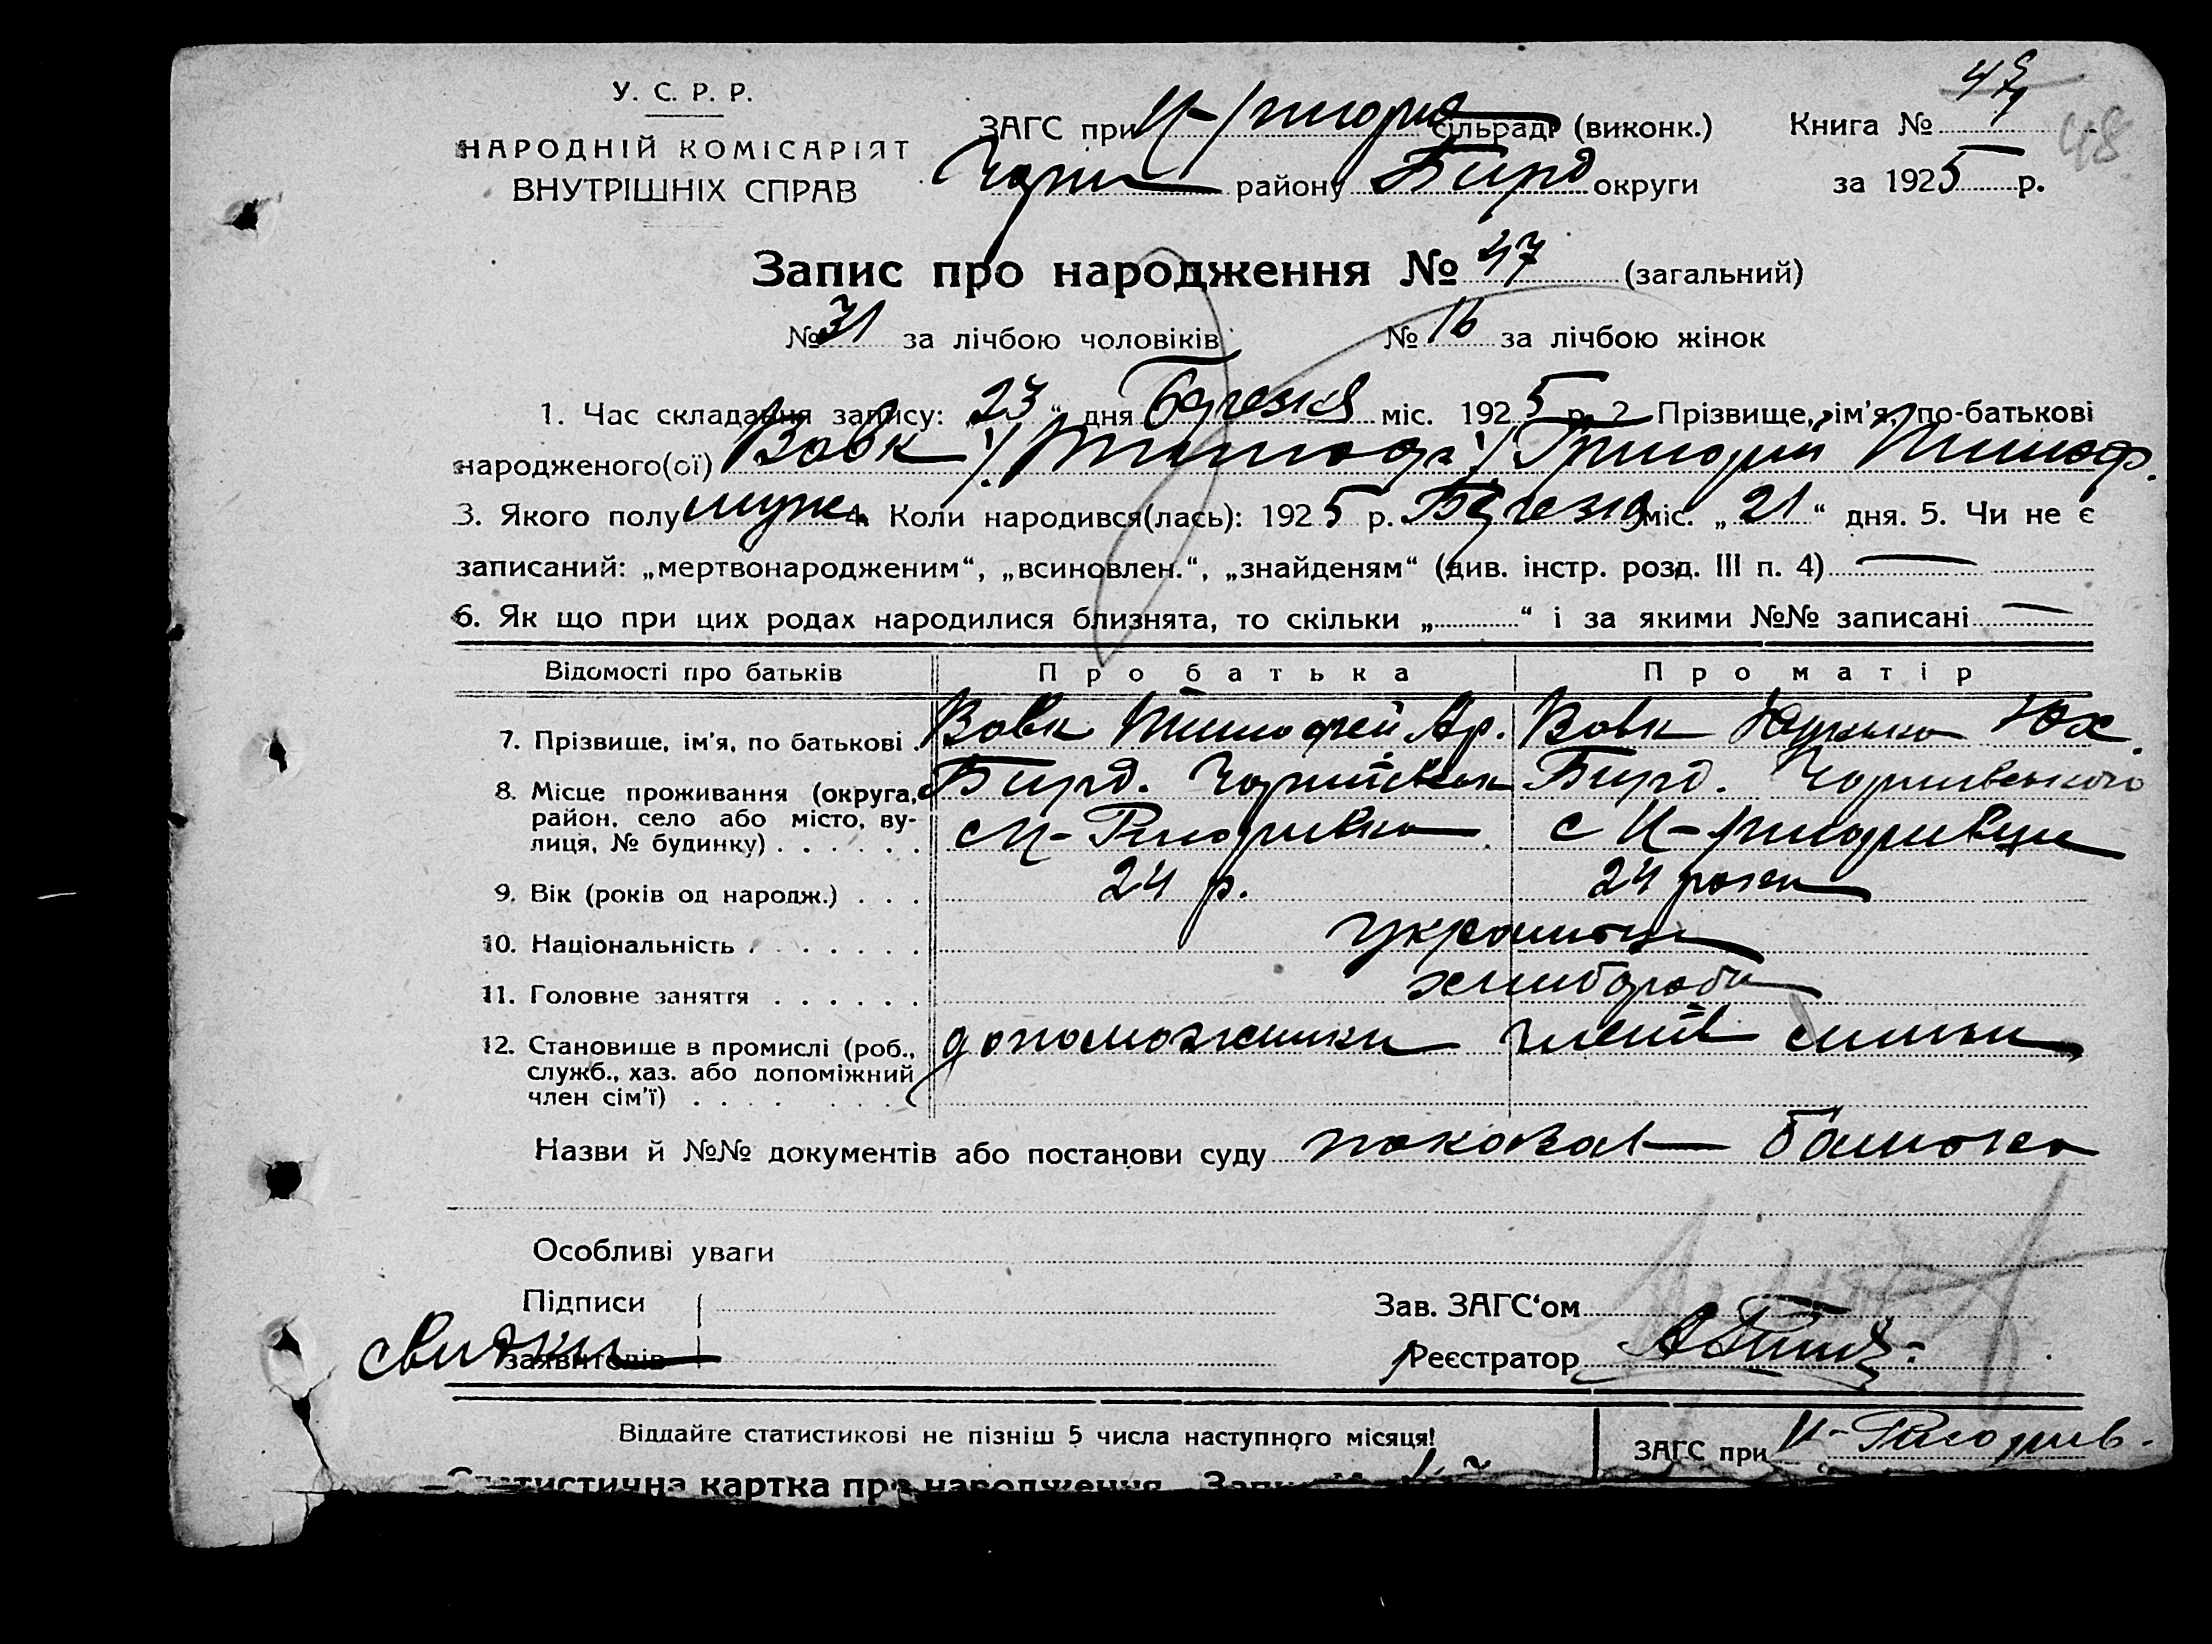 У. С. Р. Р.
НАРОДНІЙ КОМІСАРІЯТ
ВНУТРІШНІХ СПРАВ
ЗАГС при сільраді (виконк.)
Чорни району Бирд округи
Книга № 47
48
за 1925 р.
Запис про народження № 47 (загальний)
№ 31 за лічбою чоловіків № 16 за лічбою жінок
1. Час складання запису: „23“ дня Березня міс. 1925 р. 2. Прізвище, ім'я, по-батькові
народженого(ої) Вовк Григорий Тимоф.
3. Якого полу муж. 4. Коли народився(лась): 1925 р. Березня міс. „21“ дня. 5. Чи не є
записаний: „мертвонародженим“, „всиновлен.“, „знайденям“ (див. інстр. розд. III п. 4) —
6. Як що при цих родах народилися близнята, то скільки „ “ і за якими №№ записані —
Відомості про батьків Про батька Про матір
7. Прізвище, ім'я, по батькові Вовк Тимофей Ар. Вовк Юх.
8. Місце проживання (округа, район, село або місто, вулиця, № будинку)
Бирд. Бирд. Чорнивського
24 р. 24 роки
9. Вік (років од народж.)
10. Національність українці
11. Головне заняття хлибороби
12. Становище в промислі (роб., служб., хаз. або допоміжний член сім'ї) допоможники членів симьи
Назви й №№ документів або постанови суду показав батько
Особливі уваги
Підписи
заявителів
свидки
Зав. ЗАГС'ом
Реєстратор
Віддайте статистикові не пізніш 5 числа наступного місяця!
ЗАГС при
Статистична картка про народження. Запис №